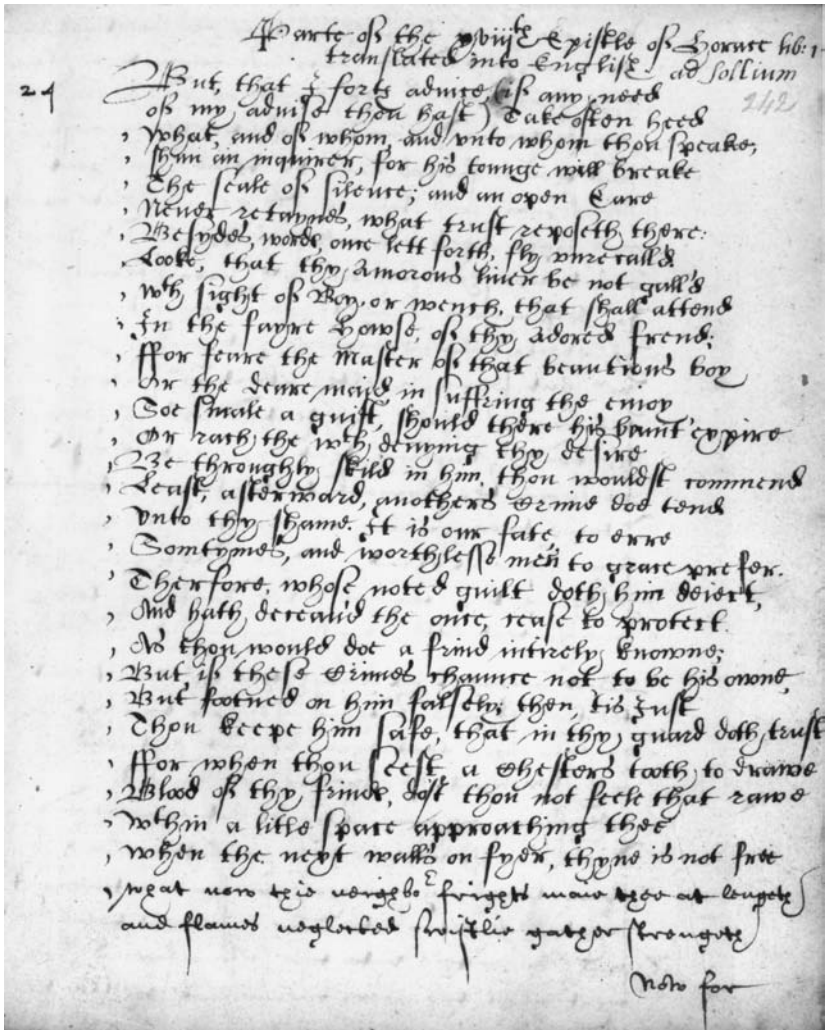 Parte of the xviijth Epistle of Horace lib: 1.
translated into English. ad Lollium
24
But, that I forte advice (if any need
242
of my advise thou hast) Take often heed
What, and of whom, and vnto whom thou speake;
Shun an inquirer, for his tounge will breake
The seale of silence; and an open Eare
Never retaynes, what trust reposeth there:
Besydes, words, once lett forth, fly vnrecalld.
Looke, that thy Amorous liuer be not galld
wth sight of Boy, or wench, that shall attend
In the fayre Howse, of thy Adored frend;
ffor feare the Master of that beautious boy
Or the deare maid in suffring the enioy
Soe smale a guift, should there his baunt expire
Or rack the wth denying thy desire
Be throughly skild in him, thou wouldst commend
Least, afterward, anothers Crime doe tend
Vnto thy shame. It is our fate, to erre
Somtymes, and worthlesse men to grace prefer.
Therfore, whose noted guilt doth him deiect,
And hath deceaud the once, cease to protect.
As thou would doe a frind intirely knowne;
But if these Crimes chaunce not to be his owne,
But footned on him falsely; then, tis Iust
Thou keepe him safe, that in thy guard doth trust
ffor when thou seest a Chesters tooth to drawe
Blood of thy frinde, dost thou not feele that rawe
wthin a litle space approaching thee
when the next walls on fyer, thyne is not free
what now thie neighbor frights maie thee at length
and flames neglected swiftlie gather strength
Now for